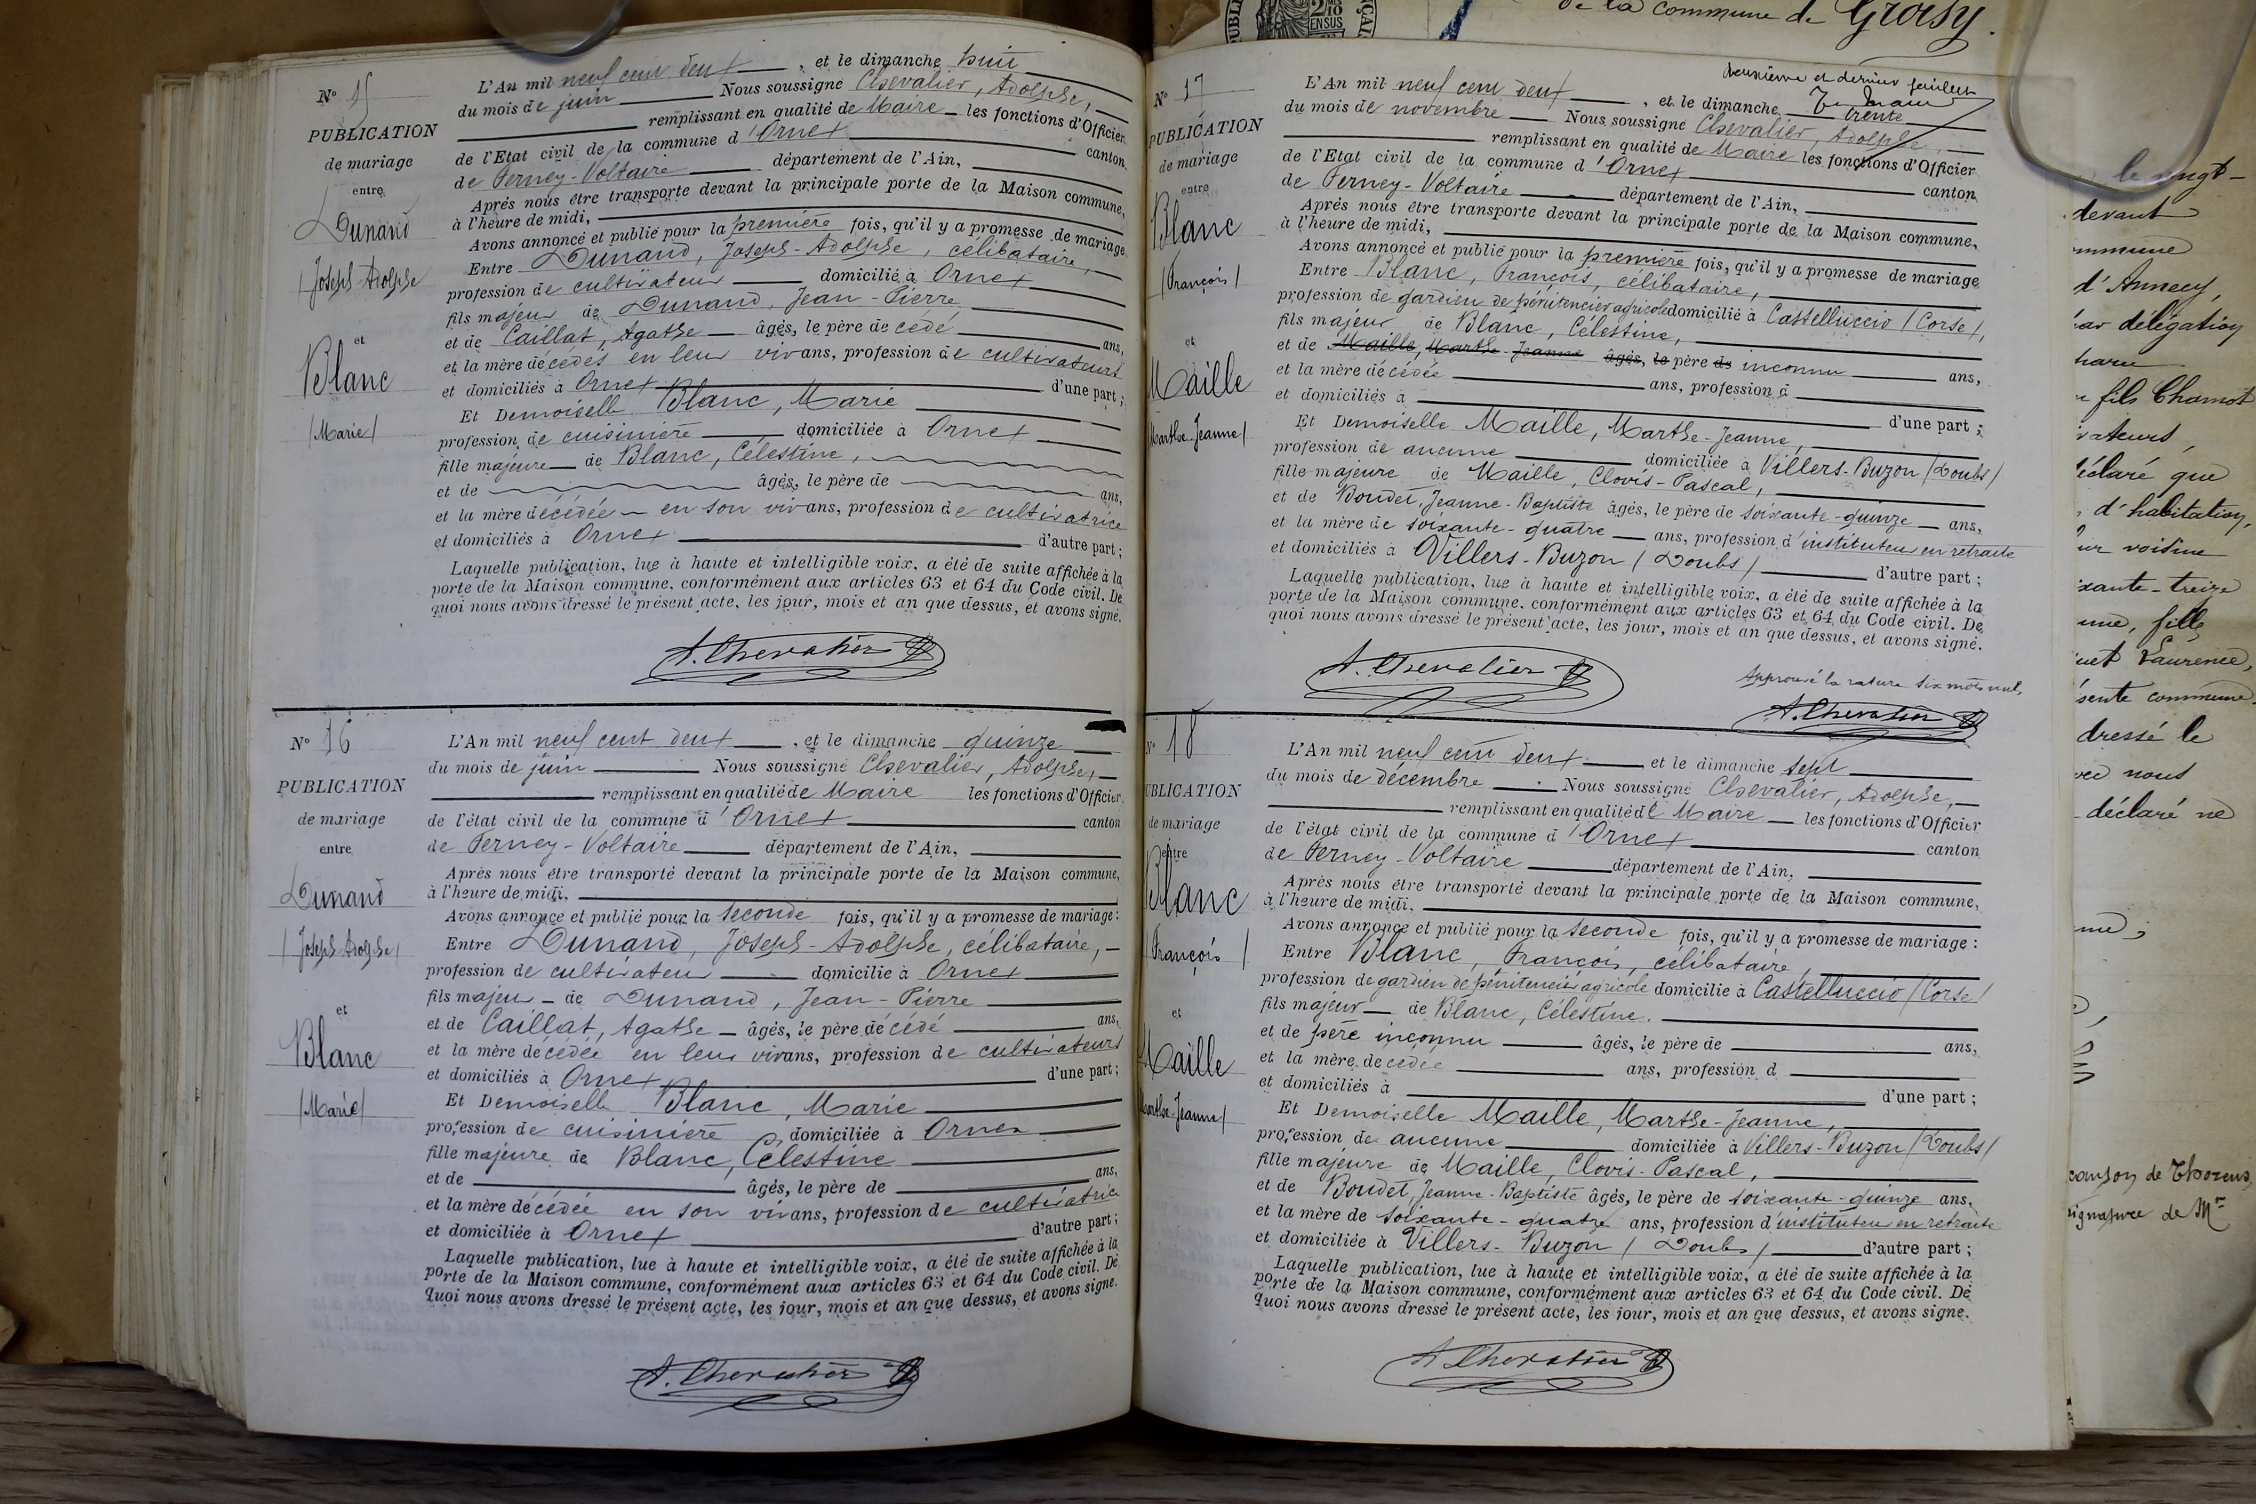 N° 15
PUBLICATION
de mariage
entre
Dunand
(Joseph Adolphe
et
Blanc
(Marie)
L'An mil neuf cent deux, et le dimanche huit
du mois de juin Nous soussigné Chevalier, Adolphe,
remplissant en qualité de Maire les fonctions d'Officier
de l'Etat civil de la commune d'Ornex canton
de Ferney-Voltaire département de l'Ain,
Après nous être transporté devant la principale porte de la Maison commune,
à l'heure de midi,
Avons annoncé et publié pour la première fois, qu'il y a promesse de mariage
Entre Dunand, Joseph-Adolphe, célibataire,
profession de cultivateur domicilié à Ornex
fils majeur de Dunand, Jean-Pierre
et de Caillat, Agathe âgés, le père de cédé ans,
et la mère décédés en leur vivans, profession de cultivateurs
et domiciliés à Ornex d'une part;
Et Demoiselle Blanc, Marie
profession de cuisinière domiciliée à Ornex
fille majeure de Blanc, Célestine,
et de âgés, le père de ans,
et la mère décédée en son vivans, profession de cultivatrice
et domiciliés à Ornex d'autre part;
Laquelle publication, lue à haute et intelligible voix, a été de suite affichée à la
porte de la Maison commune, conformément aux articles 63 et 64 du Code civil. De
quoi nous avons dressé le présent acte, les jour, mois et an que dessus, et avons signé.
A. Chevalier
N° 16
PUBLICATION
de mariage
entre
Dunand
(Joseph Adolphe)
et
Blanc
(Marie)
L'An mil neuf cent deux, et le dimanche quinze
du mois de juin Nous soussigné Chevalier, Adolphe,
remplissant en qualité de Maire les fonctions d'Officier
de l'état civil de la commune d'Ornex canton
de Ferney-Voltaire département de l'Ain,
Après nous être transporté devant la principale porte de la Maison commune,
à l'heure de midi,
Avons annoncé et publié pour la seconde fois, qu'il y a promesse de mariage:
Entre Dunand, Joseph-Adolphe, célibataire,
profession de cultivateur domicilié à Ornex
fils majeur de Dunand, Jean-Pierre
et de Caillat, Agathe âgés, le père décédé ans,
et la mère décédée en leur vivans, profession de cultivateurs
et domiciliés à Ornex d'une part;
Et Demoiselle Blanc, Marie
profession de cuisinière domiciliée à Ornex
fille majeure de Blanc, Célestine
et de âgés, le père de ans,
et la mère décédée en son vivans, profession de cultivatrice
et domiciliée à Ornex d'autre part;
Laquelle publication, lue à haute et intelligible voix, a été de suite affichée à la
porte de la Maison commune, conformément aux articles 63 et 64 du Code civil. De
quoi nous avons dressé le présent acte, les jour, mois et an que dessus, et avons signé.
A. Chevalier
deuxième et dernier feuillet
N° 17
PUBLICATION
de mariage
entre
Blanc
(François)
et
Maille
Marthe-Jeanne)
L'An mil neuf cent deux, et le dimanche trente
du mois de novembre Nous soussigné Chevalier, Adolphe,
remplissant en qualité de Maire les fonctions d'Officier
de l'Etat civil de la commune d'Ornex canton
de Ferney-Voltaire département de l'Ain,
Après nous être transporté devant la principale porte de la Maison commune,
à l'heure de midi,
Avons annoncé et publié pour la première fois, qu'il y a promesse de mariage
Entre Blanc, François, célibataire,
profession de gardien de pénitencier agricole domicilié à Castelluccio (Corse),
fils majeur de Blanc, Célestine,
et de Maille, Marthe-Jeanne âgés, le père de inconnu ans,
et la mère décédée ans, profession d
et domiciliés à d'une part;
Et Demoiselle Maille, Marthe-Jeanne,
profession de aucune domiciliée à Villers-Buzon (Doubs)
fille majeure de Maille, Clovis-Pascal,
et de Boudet, Jeanne-Baptiste âgés, le père de soixante-quinze ans,
et la mère de soixante-quatre ans, profession d'instituteur en retraite
et domiciliés à Villers-Buzon (Doubs) d'autre part;
Laquelle publication, lue à haute et intelligible voix, a été de suite affichée à la
porte de la Maison commune, conformément aux articles 63 et 64 du Code civil. De
quoi nous avons dressé le présent acte, les jour, mois et an que dessus, et avons signé.
A. Chevalier
Approuvé la rature six mots nuls,
A. Chevalier
N° 18
UBLICATION
de mariage
entre
Blanc
(François)
et
Maille
Marthe-Jeanne)
L'An mil neuf cent deux et le dimanche sept
du mois de décembre Nous soussigné Chevalier, Adolphe,
remplissant en qualité de Maire les fonctions d'Officier
de l'état civil de la commune d'Ornex canton
de Ferney-Voltaire département de l'Ain,
Après nous être transporté devant la principale porte de la Maison commune,
à l'heure de midi,
Avons annoncé et publié pour la seconde fois, qu'il y a promesse de mariage:
Entre Blanc, François, célibataire,
profession de gardien de pénitencier agricole domicilié à Castelluccio (Corse)
fils majeur de Blanc, Célestine.
et de père inconnu âgés, le père de ans,
et la mère décédée ans, profession d
et domiciliés à d'une part;
Et Demoiselle Maille, Marthe-Jeanne,
profession de aucune domiciliée à Villers-Buzon (Doubs)
fille majeure de Maille, Clovis-Pascal,
et de Boudet, Jeanne-Baptiste âgés, le père de soixante-quinze ans,
et la mère de soixante-quatre ans, profession d'instituteur en retraite
et domiciliée à Villers-Buzon (Doubs) d'autre part;
Laquelle publication, lue à haute et intelligible voix, a été de suite affichée à la
porte de la Maison commune, conformément aux articles 63 et 64 du Code civil. De
quoi nous avons dressé le présent acte, les jour, mois et an que dessus, et avons signé.
A. Chevalier
de la commune de Groisy.
le vingt-
devant
mmune
d'Annecy,
par délégation
fils Chamot
vateurs,
déclaré que
d'habitation,
ur voisine
xante-treize
une, fille
uet Laurence,
sente commune
dressé le
vec nous
déclaré ne
me;
canton de Thorens
signature de Mr